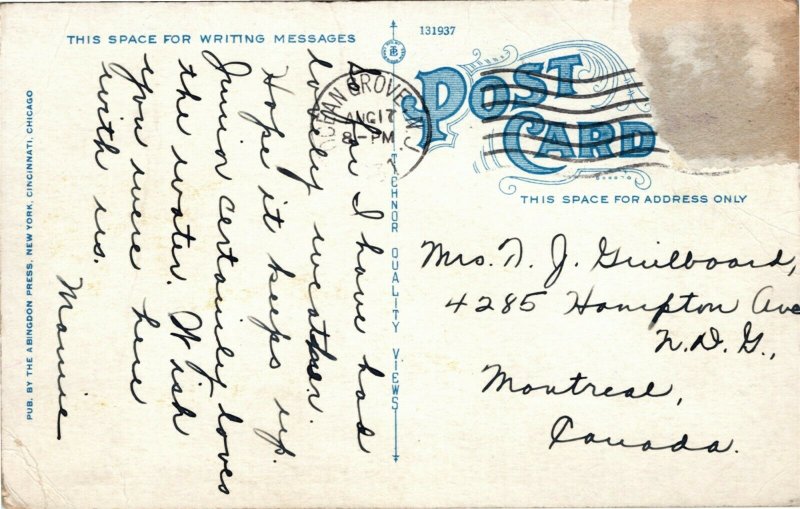 THIS SPACE FOR WRITING MESSAGES
131937
POST
CARD
THIS SPACE FOR ADDRESS ONLY
OCEAN GROVE, N.J.
AUG 17
8-PM
So far I have had
lovely weather.
Hope it keeps up.
Junior certainly loves
the water. Wish
you were here
with us.
Mamie
Mrs. N. J. Guilboard,
4285 Hampton Ave
N.D.G.,
Montreal,
Canada.
TICHNOR QUALITY VIEWS
PUB. BY THE ABINGDON PRESS, NEW YORK, CINCINNATI, CHICAGO